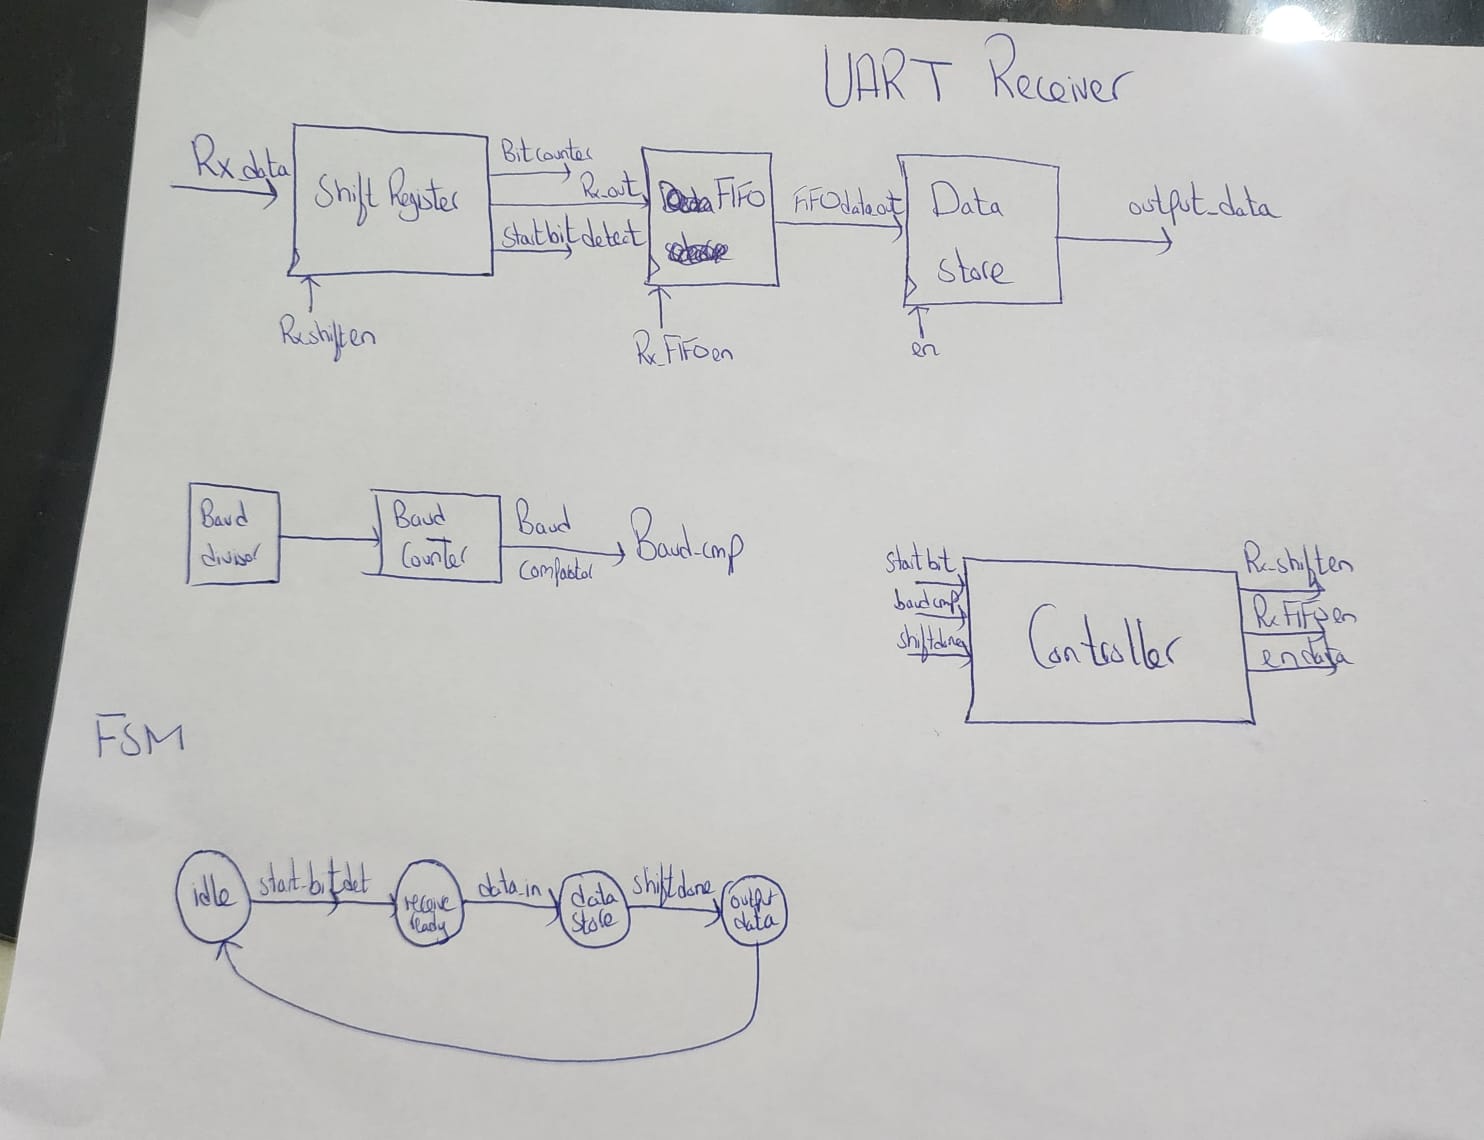 UART Receiver
Rx_data
Shift Register
Bit counter
Rx_out
Start bit detect
Rx shift en
FIFO
Rx_FIFO en
FIFO data out
Data
Store
en
output_data
Baud
divisor
Baud
Counter
Baud
Comparator
Baud-cmp
start bit
baud cmp
shift done
Controller
Rx-shift en
Rx FIFO en
en data
FSM
idle
start-bit det
receive
ready
data in
data
store
shift done
output
data